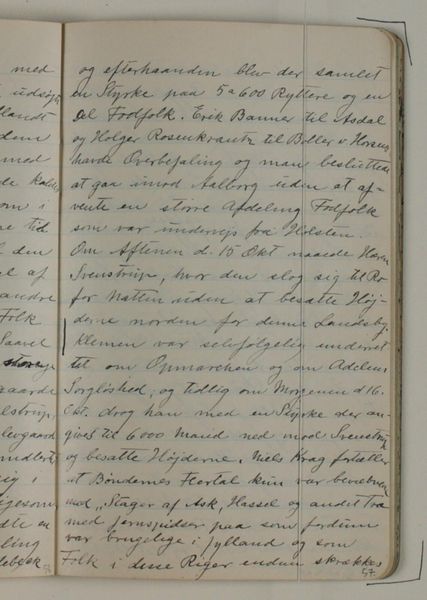 med
udsøgt
llandt
dem
med
de kalder
om i
re tid
den
el af
andre
Folk
Saavel
gaarde
elstrup,
levgaard
ndlert
sig i
igesom
dte en
ling
lebæk
og efterhaanden blev der samlet
en Styrke paa 5 a 600 Ryttere og en
Del Fodfolk. Erik Banner til Asdal
og Holger Rosenkrantz til Boller v. Horsens
havde Overbefaling og man besluttede
at gaa imod Aalborg uden at af-
vente en større Afdeling Fodfolk
som var undervejs fra Holsten.
Om Aftenen d. 15 Okt naaede Hæren
Svenstrup, hvor den slog sig til Ro
for Natten uden at besatte Høj-
derne norden for denne Landsby.
Klemen var selvfølgelig underret
til om Opmarchen og om Adelens
Sorgløshed, og tidlig om Morgenen d 16.
Okt. drog han med en Styrke der an-
gives til 6000 Mand ned mod Svenstrup
og besatte Højderne. Niels Krag fortæller
at Bøndernes Flertal kun var bevæbnet
med „Stager af Ask, Hassel og andet Træ
med Jernspidser paa som fordum
var brugelige i Jylland og som
Folk i disse Riger endnu skrækkes
57.